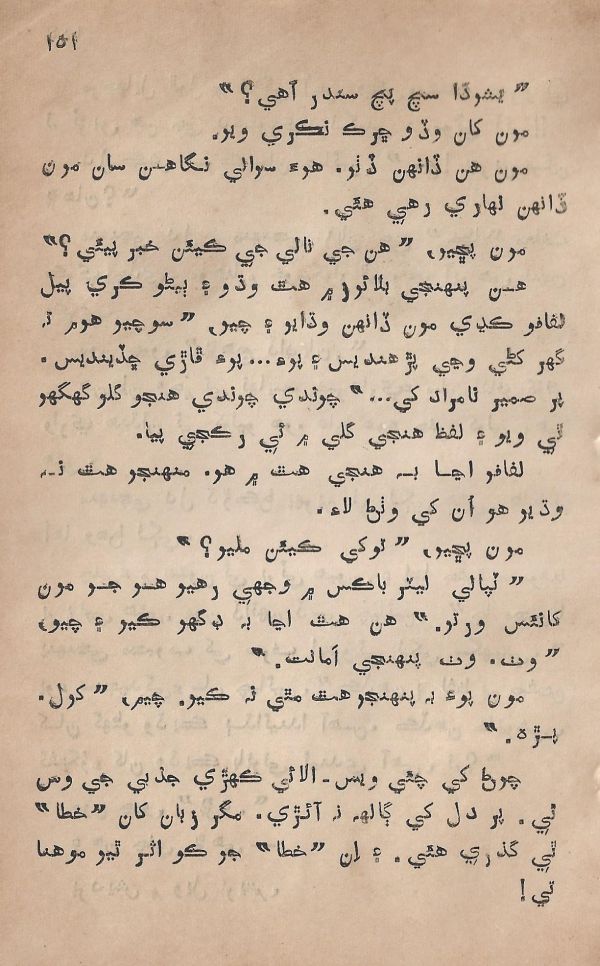 ۱۵۱
”يشوڌا سچ پچ سندر آهي؟“
مون کان وڏو ڇرڪ نڪري ويو.
مون هن ڏانهن ڏٺو. هوءَ سوالي نگاهن سان مون
ڏانهن نهاري رهي هئي.
مون پڇيو، ”هن جي نالي جي ڪيئن خبر پيئي؟“
هن پنهنجي بلائوز ۾ هٿ وڌو ۽ ٻيڻو ڪري پيل
لفافو ڪڍي مون ڏانهن وڌايو ۽ چيو، ”سوچيو هوم ته
گهر کڻي وڃي پڙهنديس ۽ پوءِ... پوءِ ڦاڙي ڇڏينديس.
پر ضمير نامراد کي...“ چوندي چوندي هنجو گلو گهگهو
ٿي ويو ۽ لفظ هنجي گلي ۾ ئي رڪجي پيا.
لفافو اڃا به هنجي هٿ ۾ هو. منهنجو هٿ نه
وڌيو هو اُن کي وٺڻ لاءِ.
مون پڇيو، ”توکي ڪيئن مليو؟“
”ٽپالي ليٽر باڪس ۾ وجهي رهيو هو جو مون
کانئس ورتو.“ هن هٿ اڃا به ڊگهو ڪيو ۽ چيو،
”وٺ. وٺ پنهنجي آمانت.“
مون پوءِ به پنهنجو هٿ مٿي نه ڪيو. چيم، ”کول.
پڙهه.“
چوڻ کي چئي ويس۔ الائي ڪهڙي جذبي جي وس
ٿي. پر دل کي ڳالهه نه آئڙي. مگر زبان کان ”خطا“
ٿي گذري هئي. ۽ اِن ”خطا“ جو ڪو اثر ٿيو موهنا
تي!